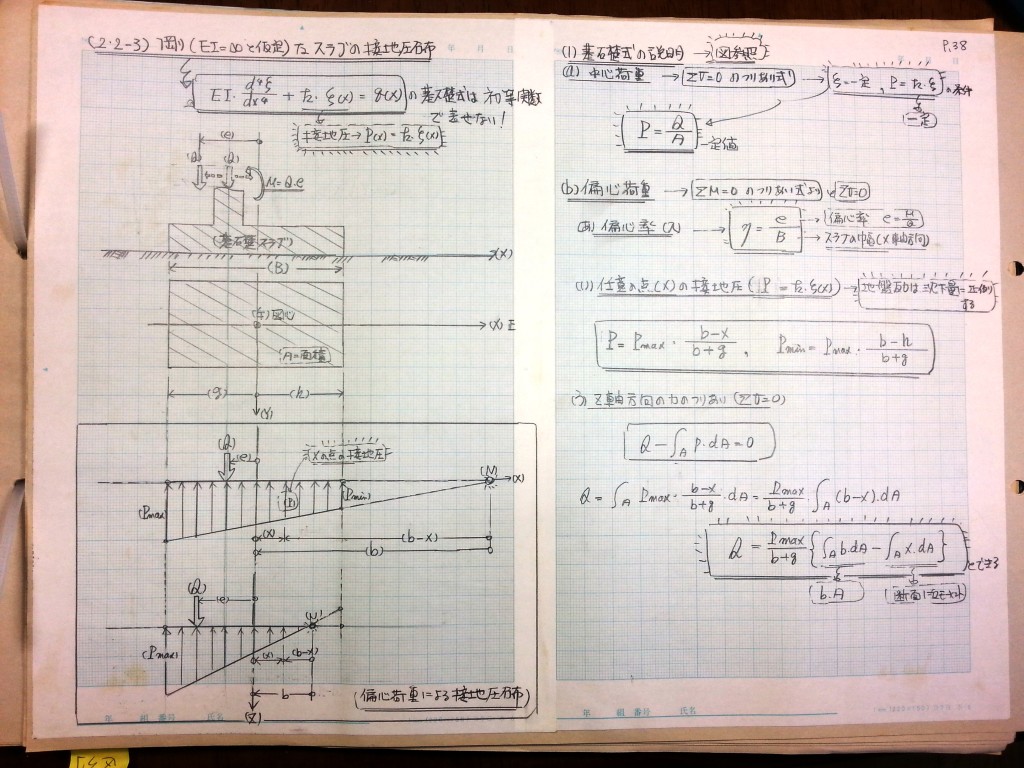 (2・2-3) 剛(EI=∞と仮定)な スラブの接地圧分布
EI・d⁴ξ/dx⁴ + k・ξ(x) = q(x) の基礎式は 初等関数
で表せない!
接地圧→P(x)=k・ξ(x)
(e)
(Q) (Q)
M=Q・e
(基礎スラブ)
(X)
(B)
図心
(X)
A=面積
(g) (h)
(Y)
(Q)
(e)
Xの点の接地圧
(N)
(X)
(Pmax)
(P)
(Pmin)
(x) (b-x)
(b)
(Q)
(e)
(N)
(Pmax)
(x) (b-x)
b
(Z)
(偏心荷重による接地圧分布)
年 組 番号 氏名
P.38
(1) 基礎式の説明 → 図参照
(a) 中心荷重 → ΣV=0 のつりあい式 → ξ=一定, P=k・ξ の条件
(一定)
P = Q/A 一定値
(b) 偏心荷重 → ΣM=0 のつりあい式より と ΣV=0
偏心率 → η = e/B → 偏心率 e=M/Q
→ スラブの巾(X軸方向)
任意の点(X)の接地圧(P=k・ξ(x)) → 地盤反力は沈下量に正比例
する
P = Pmax・(b-x)/(b+g), Pmin = Pmax・(b-h)/(b+g)
Z軸方向の力のつりあい (ΣV=0)
Q - ∫A P・dA = 0
Q = ∫A Pmax・(b-x)/(b+g)・dA = Pmax/(b+g)・∫A (b-x)・dA
Q = Pmax/(b+g) {∫A b・dA - ∫A x・dA} とできる
b・A 断面1次モーメント
年 組 番号 氏名